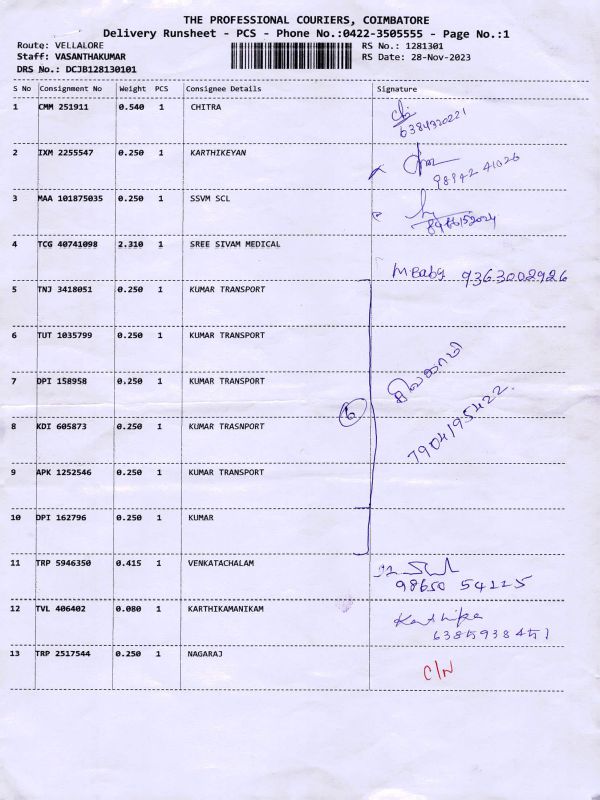 THE PROFESSIONAL COURIERS, COIMBATORE
Delivery Runsheet - PCS - Phone No.:0422-3505555 - Page No.:1
Route: VELLALORE RS No.: 1281301
Staff: VASANTHAKUMAR RS Date: 28-Nov-2023
DRS No.: DCJB128130101
S No Consignment No Weight PCS Consignee Details Signature
1 CMM 251911 0.540 1 CHITRA
6384320221
2 IXM 2255547 0.250 1 KARTHIKEYAN
98942 41026
3 MAA 101875035 0.250 1 SSVM SCL
4 TCG 40741098 2.310 1 SREE SIVAM MEDICAL
M.Baby 9363002926
5 TNJ 3418051 0.250 1 KUMAR TRANSPORT
6 TUT 1035799 0.250 1 KUMAR TRANSPORT
7 DPI 158958 0.250 1 KUMAR TRANSPORT
6
7904195422.
8 KDI 605873 0.250 1 KUMAR TRASNPORT
9 APK 1252546 0.250 1 KUMAR TRANSPORT
10 DPI 162796 0.250 1 KUMAR
11 TRP 5946350 0.415 1 VENKATACHALAM
98650 54225
12 TVL 406402 0.080 1 KARTHIKAMANIKAM
Karthika
13 TRP 2517544 0.250 1 NAGARAJ
C/N